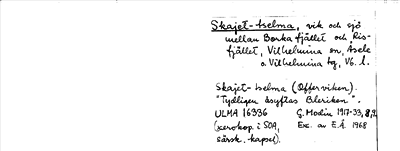 Skajet-tselma, vik och sjö
mellan Borkafjället och Ris-
fjället, Vilhelmina sn, Åsele
o. Vilhelmina tg, Vb. l.
Skajet-tselma (Offerviken).
"Tydligen åsyftas Bleriken".
ULMA 16336 G. Modin 1917-33, 8,9.
(xerokop. i SOA, Exc. av E.Å. 1968
särsk. kapsel).